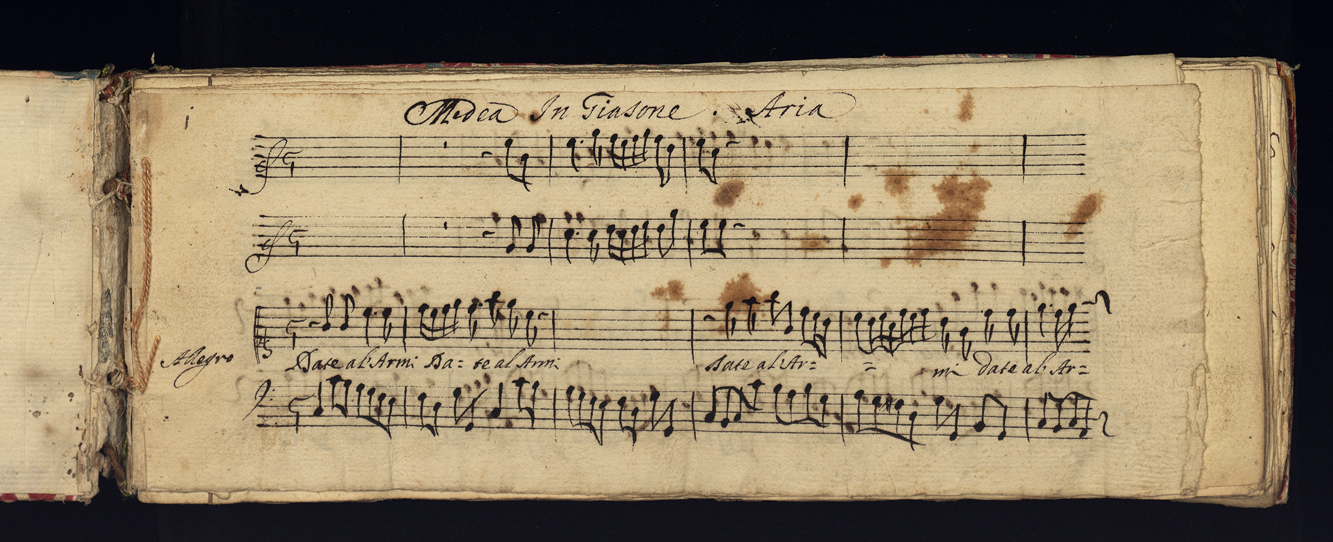 Medea In Giasone . Aria
Allegro
Date al Armi Da = te al Armi date al Ar = = mi date al Ar =